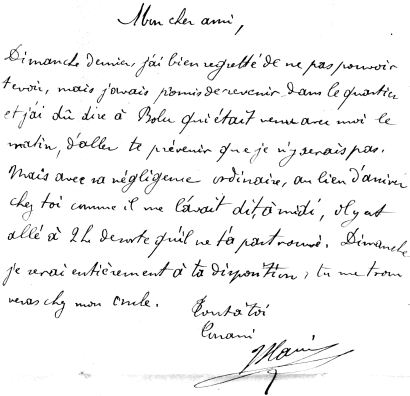 Mon cher ami,
Dimanche dernier, j'ai bien regretté de ne pas pouvoir
te voir, mais j'avais promis de revenir dans le quartier
et j'ai dû dire à Boler qui était venu avec moi le
matin, d'aller te prévenir que je n'y serais pas.
Mais avec sa négligence ordinaire, au lieu d'arriver
chez toi comme il me l'avait dit à midi, il y est
allé à 2h de sorte qu'il ne t'a pas trouvé. Dimanche
je serai entièrement à ta disposition, tu me trou
veras chez mon oncle.
Tout à toi